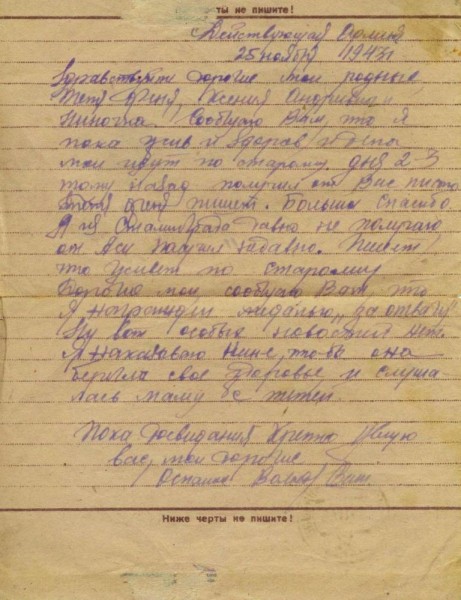 ты не пишите!
Действующая Армия
25 ноября 1943 г
Здравствуйте дорогие мои родные
тетя Феня, Ксения Андреевна и
Ниночка. Сообщаю Вам, что я
пока жив и здоров
мои идут по старому. дня 2-3
тому назад получил от Вас письмо
тетя Феня пишет. Большое спасибо.
А из Сталинграда давно не получаю
от Аси получил недавно. Пишет
что живет по старому
Дорогие мои сообщаю Вам что
Я награжден медалью „за отвагу"
Ну вот особых новостей нет.
Я наказываю Нине, чтобы она
берегла свое здоровье и слуша
лась маму и тетей.
Пока досвидания Крепко целую
вас, мои дорогие
Остаюсь Ваш
Ниже черты не пишите!